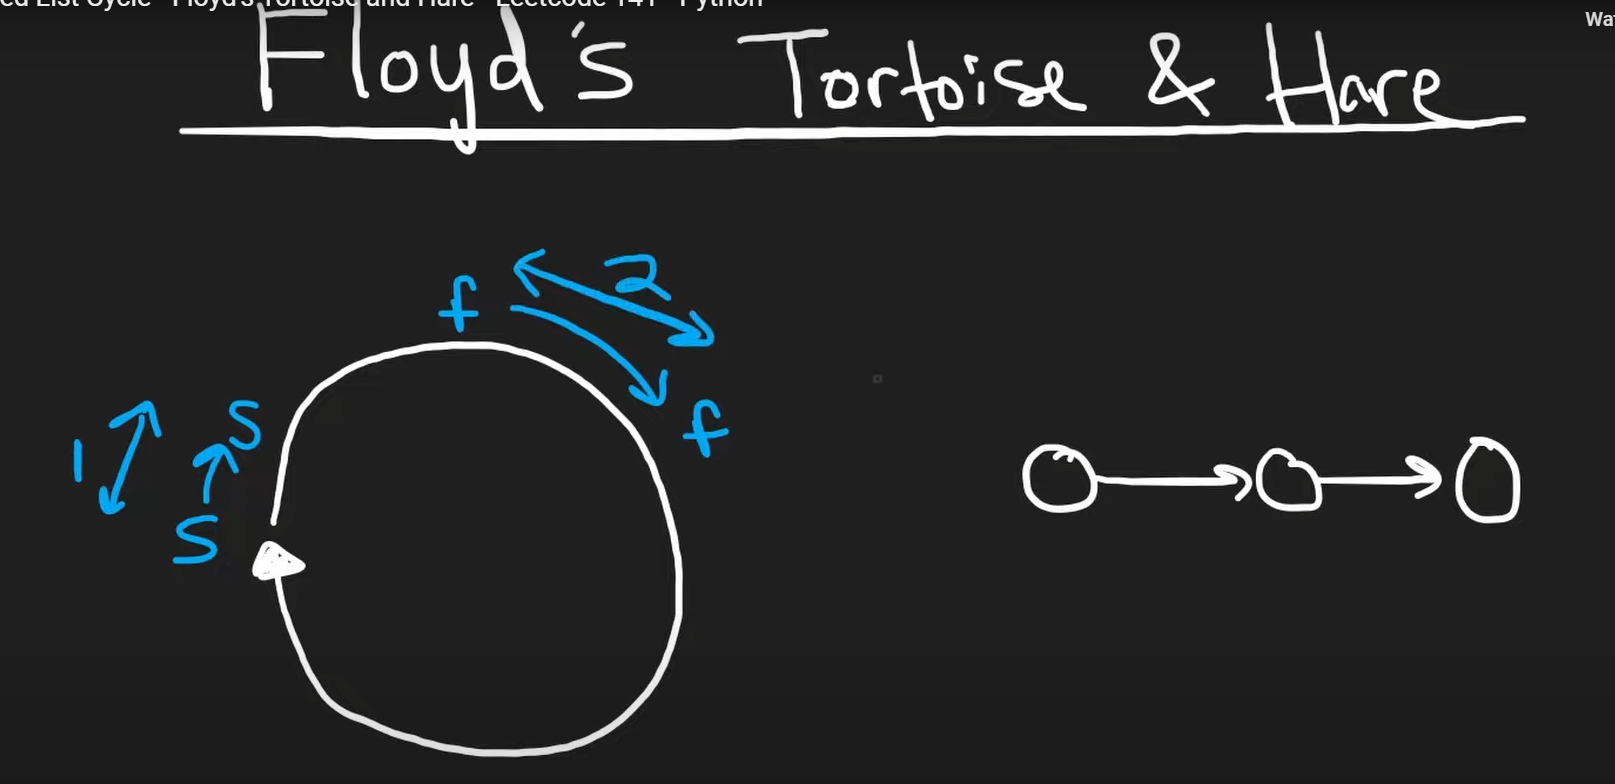 ed List Cycle - Floyd's Tortoise and Hare - Leetcode 141 - Python
Floyd's Tortoise & Hare
f 2
f
1 S
S